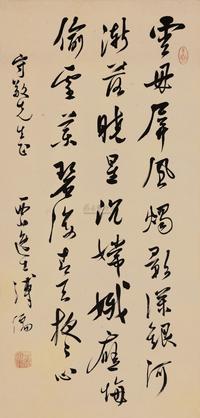 雲母屏風燭影深銀河
漸落曉星沈嫦娥應悔
偷靈藥碧海青天夜々心
守敬先生正
西山逸士溥儒